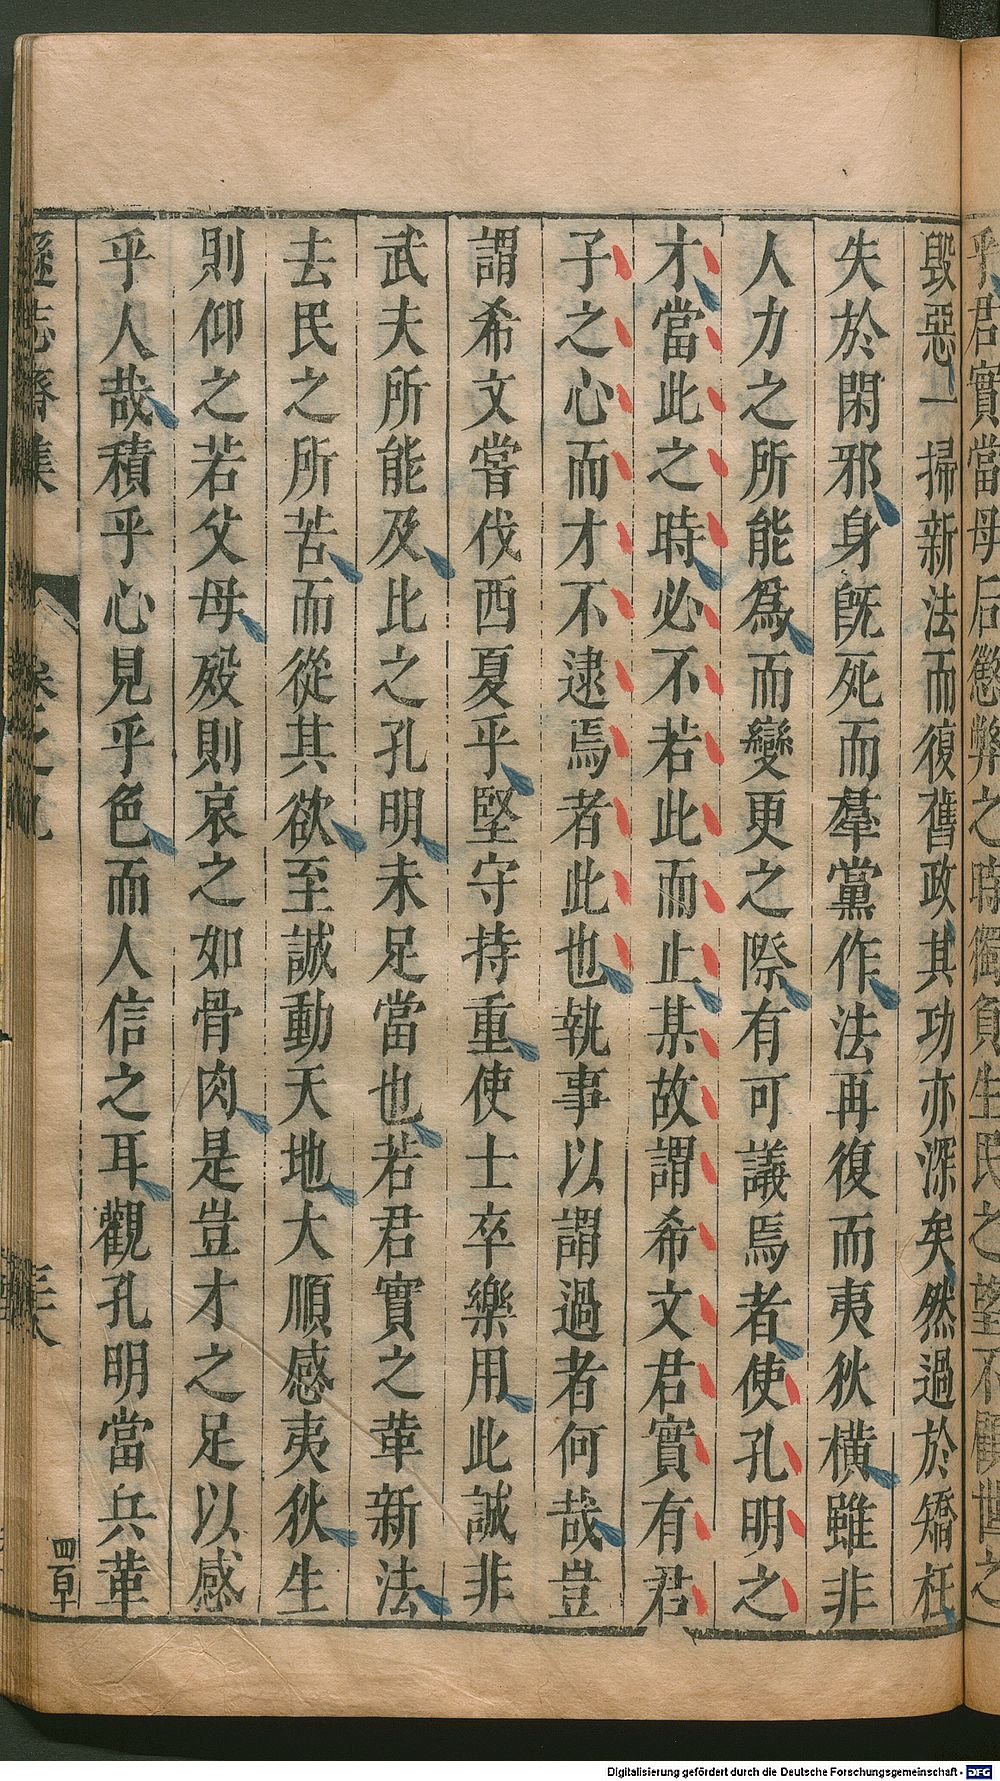 乎君實當母后懲弊之時獨負生民之望不顧世之
毀惡一掃新法而復舊政其功亦深矣然過於矯枉
失於閑邪身旣死而羣黨作法再復而夷狄橫雖非
人力之所能爲而變更之際有可議焉者使孔明之
才當此之時必不若此而止某故謂希文君實有君
子之心而才不逮焉者此也執事以謂過者何哉豈
謂希文嘗伐西夏乎堅守持重使士卒樂用此誠非
武夫所能及比之孔明未足當也若君實之革新法
去民之所苦而從其欲至誠動天地大順感夷狄生
則仰之若父母歿則哀之如骨肉是豈才之足以感
乎人哉積乎心見乎色而人信之耳觀孔明當兵革
遜志齋集 卷之九 三十八 四百
Digitalisierung gefördert durch die Deutsche Forschungsgemeinschaft - DFG